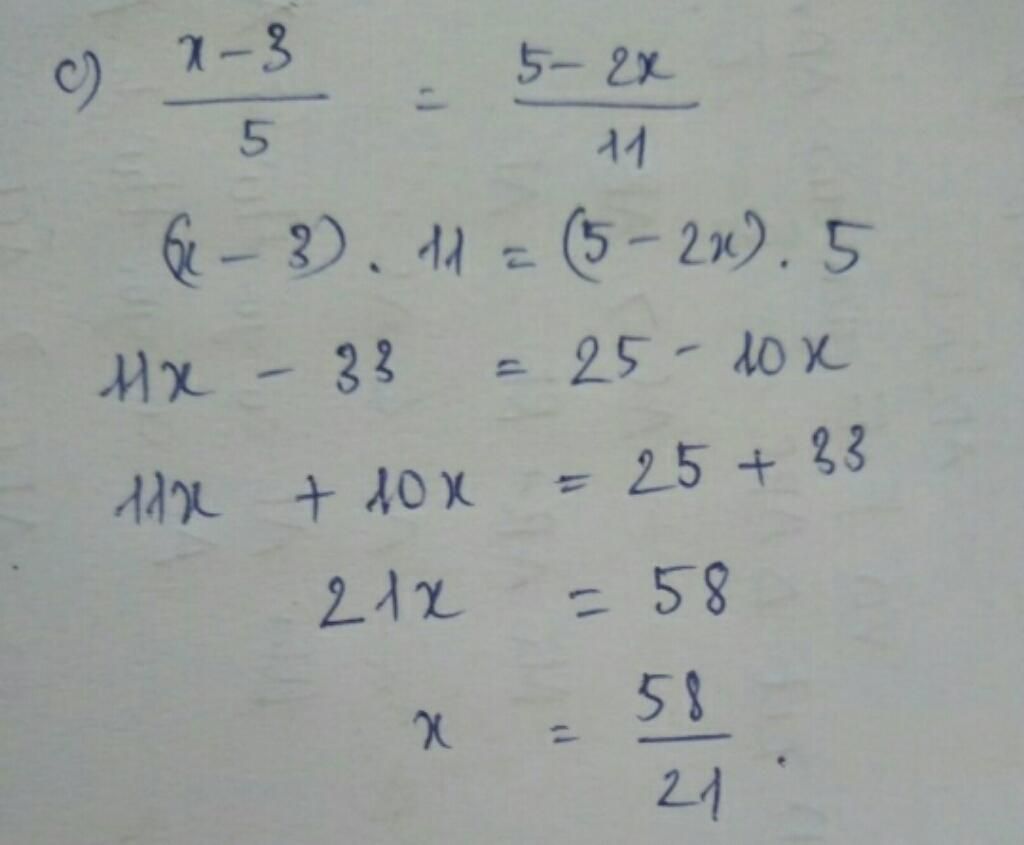 c) x-3/5 = 5-2x/11
(x-3). 11 = (5-2x). 5
11x - 33 = 25 - 10x
11x + 10x = 25 + 33
21x = 58
x = 58/21.